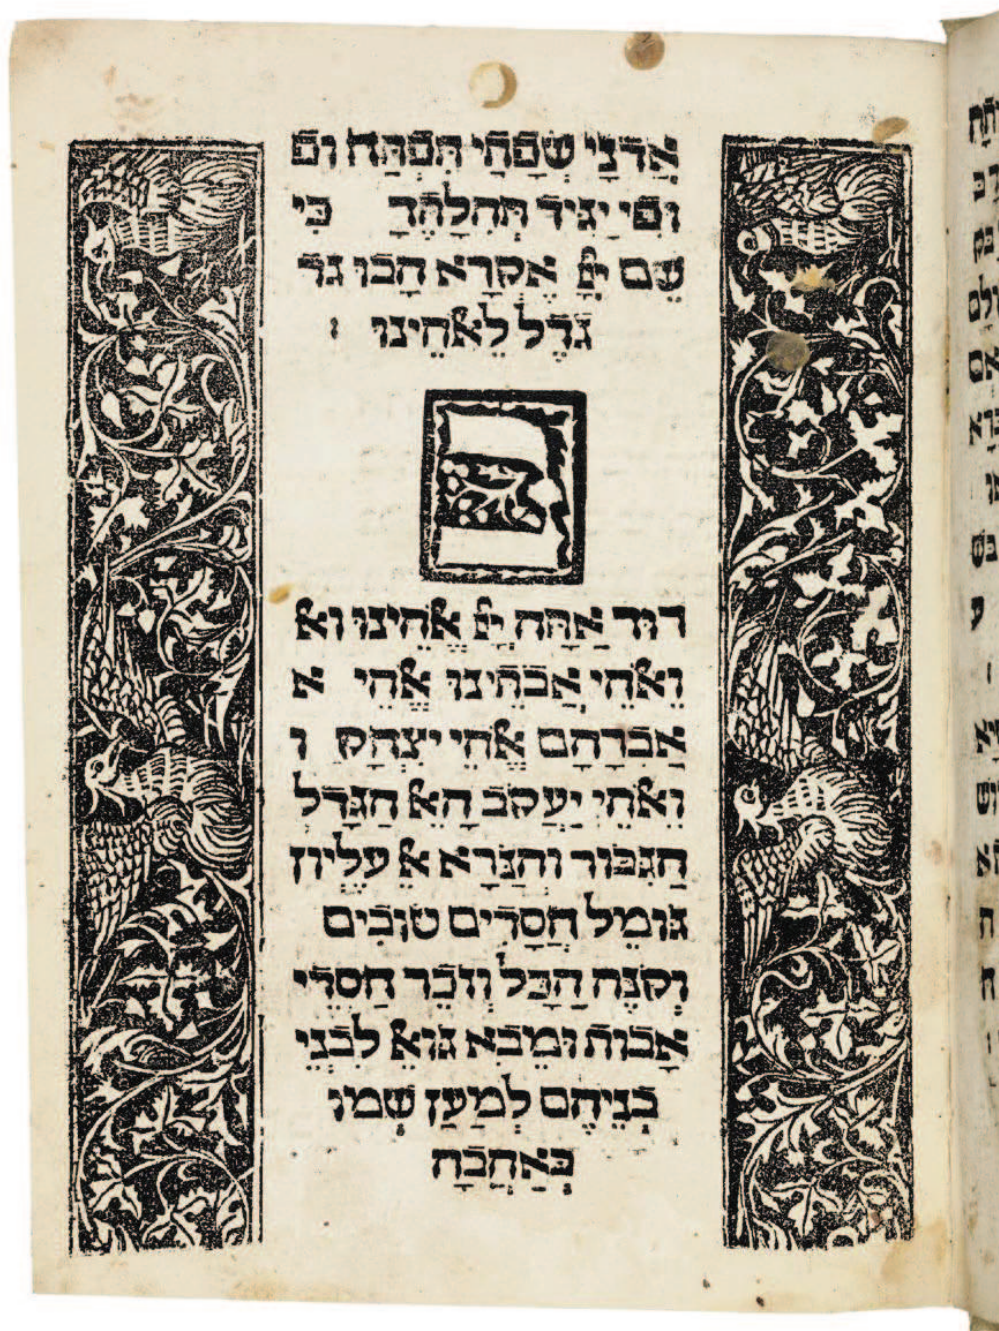 אֲדֹנָי שְׂפָתַי תִּפְתַּח וּפ
וּפִי יַגִּיד תְּהִלָּתֶךָ כִּי
שֵׁם יְיָ אֶקְרָא הָבוּ גד
גֹדֶל לֵאלֹהֵינוּ :
ב
רוּךְ אַתָּה יְיָ אֱלֹהֵינוּ וא
וֵאלֹהֵי אֲבֹתֵינוּ אֱלֹהֵי א
אַבְרָהָם אֱלֹהֵי יִצְחָק ו
וֵאלֹהֵי יַעֲקֹב הָאֵל הַגָּדֹל
הַגִּבּוֹר וְהַנֹּרָא אֵל עֶלְיוֹן
גּוֹמֵל חֲסָדִים טוֹבִים
וְקֹנֵה הַכֹּל וְזֹכֵר חַסְדֵי
אָבוֹת וּמֵבִא גוֹאֵל לִבְנֵי
בְנֵיהֶם לְמַעַן שְׁמוֹ
בְּאַהֲבָה